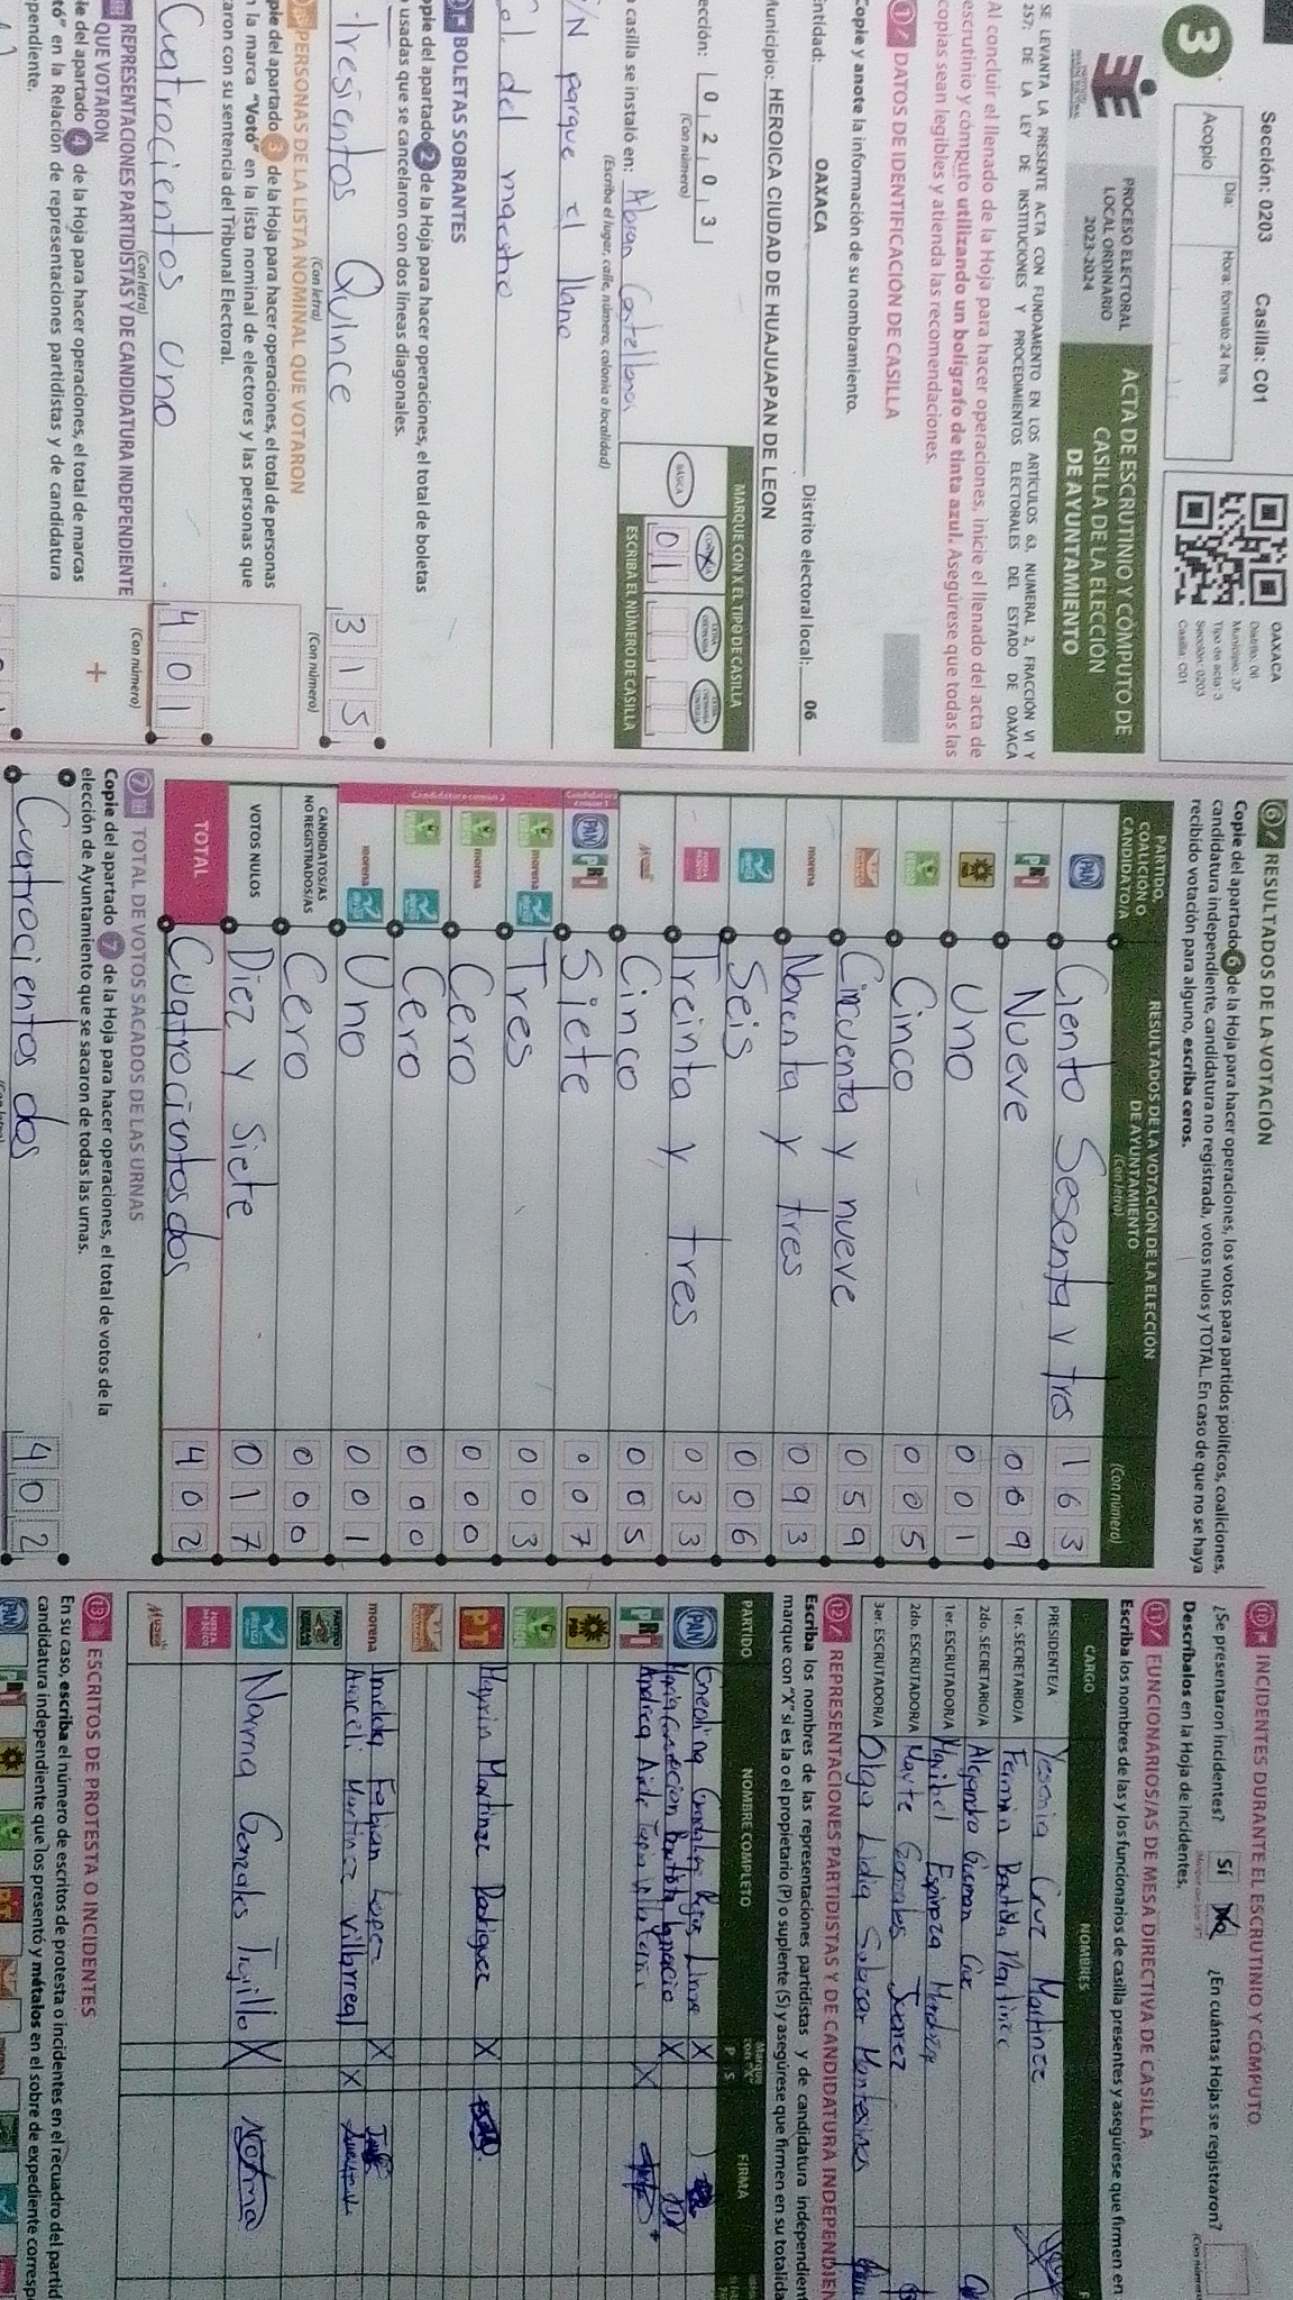 Sección: 0203 Casilla: C01
3
Día: Hora: formato 24 hrs.
Acopio
OAXACA
Distrito: 06
Municipio: 37
Tipo de acta: 3
Sección: 0203
Casilla: C01
PROCESO ELECTORAL
LOCAL ORDINARIO
2023-2024
ACTA DE ESCRUTINIO Y CÓMPUTO DE
CASILLA DE LA ELECCIÓN
DE AYUNTAMIENTO
SE LEVANTA LA PRESENTE ACTA CON FUNDAMENTO EN LOS ARTÍCULOS 63, NUMERAL 2, FRACCIÓN VI Y
257; DE LA LEY DE INSTITUCIONES Y PROCEDIMIENTOS ELECTORALES DEL ESTADO DE OAXACA
Al concluir el llenado de la Hoja para hacer operaciones, inicie el llenado del acta de
escrutinio y cómputo utilizando un bolígrafo de tinta azul. Asegúrese que todas las
copias sean legibles y atienda las recomendaciones.
1 DATOS DE IDENTIFICACIÓN DE CASILLA
Copie y anote la información de su nombramiento.
Entidad: OAXACA Distrito electoral local: 06
Municipio: HEROICA CIUDAD DE HUAJUAPAN DE LEON
ección: 0 2 0 3
(Con número)
MARQUE CON X EL TIPO DE CASILLA
BÁSICA
0 1
ESCRIBA EL NÚMERO DE CASILLA
casilla se instaló en: Abran Castellanos
(Escriba el lugar, calle, número, colonia o localidad)
/N parque el llano
Col. del maestro
BOLETAS SOBRANTES
opie del apartado 2 de la Hoja para hacer operaciones, el total de boletas
usadas que se cancelaron con dos líneas diagonales.
Tresientos Quince 3 1 5
(Con letra) (Con número)
PERSONAS DE LA LISTA NOMINAL QUE VOTARON
pie del apartado 3 de la Hoja para hacer operaciones, el total de personas
n la marca "Votó" en la lista nominal de electores y las personas que
aron con su sentencia del Tribunal Electoral.
Cuatrocientos uno 4 0 1
(Con letra) (Con número)
REPRESENTACIONES PARTIDISTAS Y DE CANDIDATURA INDEPENDIENTE
QUE VOTARON
ie del apartado 4 de la Hoja para hacer operaciones, el total de marcas
tó" en la Relación de representaciones partidistas y de candidatura
pendiente.
+
6 RESULTADOS DE LA VOTACIÓN
Copie del apartado 6 de la Hoja para hacer operaciones, los votos para partidos políticos, coaliciones,
candidatura independiente, candidatura no registrada, votos nulos y TOTAL. En caso de que no se haya
recibido votación para alguno, escriba ceros.
PARTIDO,
COALICIÓN O
CANDIDATO/A
RESULTADOS DE LA VOTACIÓN DE LA ELECCIÓN
DE AYUNTAMIENTO
(Con letra) (Con número)
PAN Ciento Sesenta y tres 1 6 3
PRI Nueve 0 0 9
PRD Uno 0 0 1
VERDE Cinco 0 0 5
Cincuenta y nueve 0 5 9
morena Noventa y tres 0 9 3
Seis 0 0 6
Treinta y tres 0 3 3
Cinco 0 0 5
Candidatura común 1
PAN PRI Siete 0 0 7
Candidatura común 2
VERDE morena Tres 0 0 3
VERDE morena Cero 0 0 0
VERDE Cero 0 0 0
morena Uno 0 0 1
CANDIDATOS/AS
NO REGISTRADOS/AS Cero 0 0 0
VOTOS NULOS Diez y Siete 0 1 7
TOTAL Cuatrocientos dos 4 0 2
7 TOTAL DE VOTOS SACADOS DE LAS URNAS
Copie del apartado 7 de la Hoja para hacer operaciones, el total de votos de la
elección de Ayuntamiento que se sacaron de todas las urnas.
Cuatrocientos dos 4 0 2
10 INCIDENTES DURANTE EL ESCRUTINIO Y CÓMPUTO
¿Se presentaron incidentes? Sí No ¿En cuántas Hojas se registraron?
Descríbalos en la Hoja de incidentes.
11 FUNCIONARIOS/AS DE MESA DIRECTIVA DE CASILLA
Escriba los nombres de las y los funcionarios de casilla presentes y asegúrese que firmen en
CARGO NOMBRES
PRESIDENTE/A Yesenia Cruz Martinez
1er. SECRETARIO/A Fermin Bautista Martinez
2do. SECRETARIO/A Alejandro Guzman
1er. ESCRUTADOR/A Maribel Espinoza
2do. ESCRUTADOR/A Mayte Gonzales Juarez
3er. ESCRUTADOR/A Olga Lidia Salazar Montesinos
12 REPRESENTACIONES PARTIDISTAS Y DE CANDIDATURA INDEPENDIEN
Escriba los nombres de las representaciones partidistas y de candidatura independient
marque con "X" si es la o el propietario (P) o suplente (S) y asegúrese que firmen en su totalida
PARTIDO NOMBRE COMPLETO Marque con "X" P S FIRMA
PAN Guadalupe Rojas X
Bautista Ignacio X
PRI Andrea X
PRD
VERDE
PT Mayrin Martinez Rodriguez X
morena Imelda Fabian Lopez X
Araceli Martinez Villarreal X
Norma Gonzales Trujillo X Norma
13 ESCRITOS DE PROTESTA O INCIDENTES
En su caso, escriba el número de escritos de protesta o incidentes en el recuadro del partid
candidatura independiente que los presentó y métalos en el sobre de expediente corresp
PAN PRI